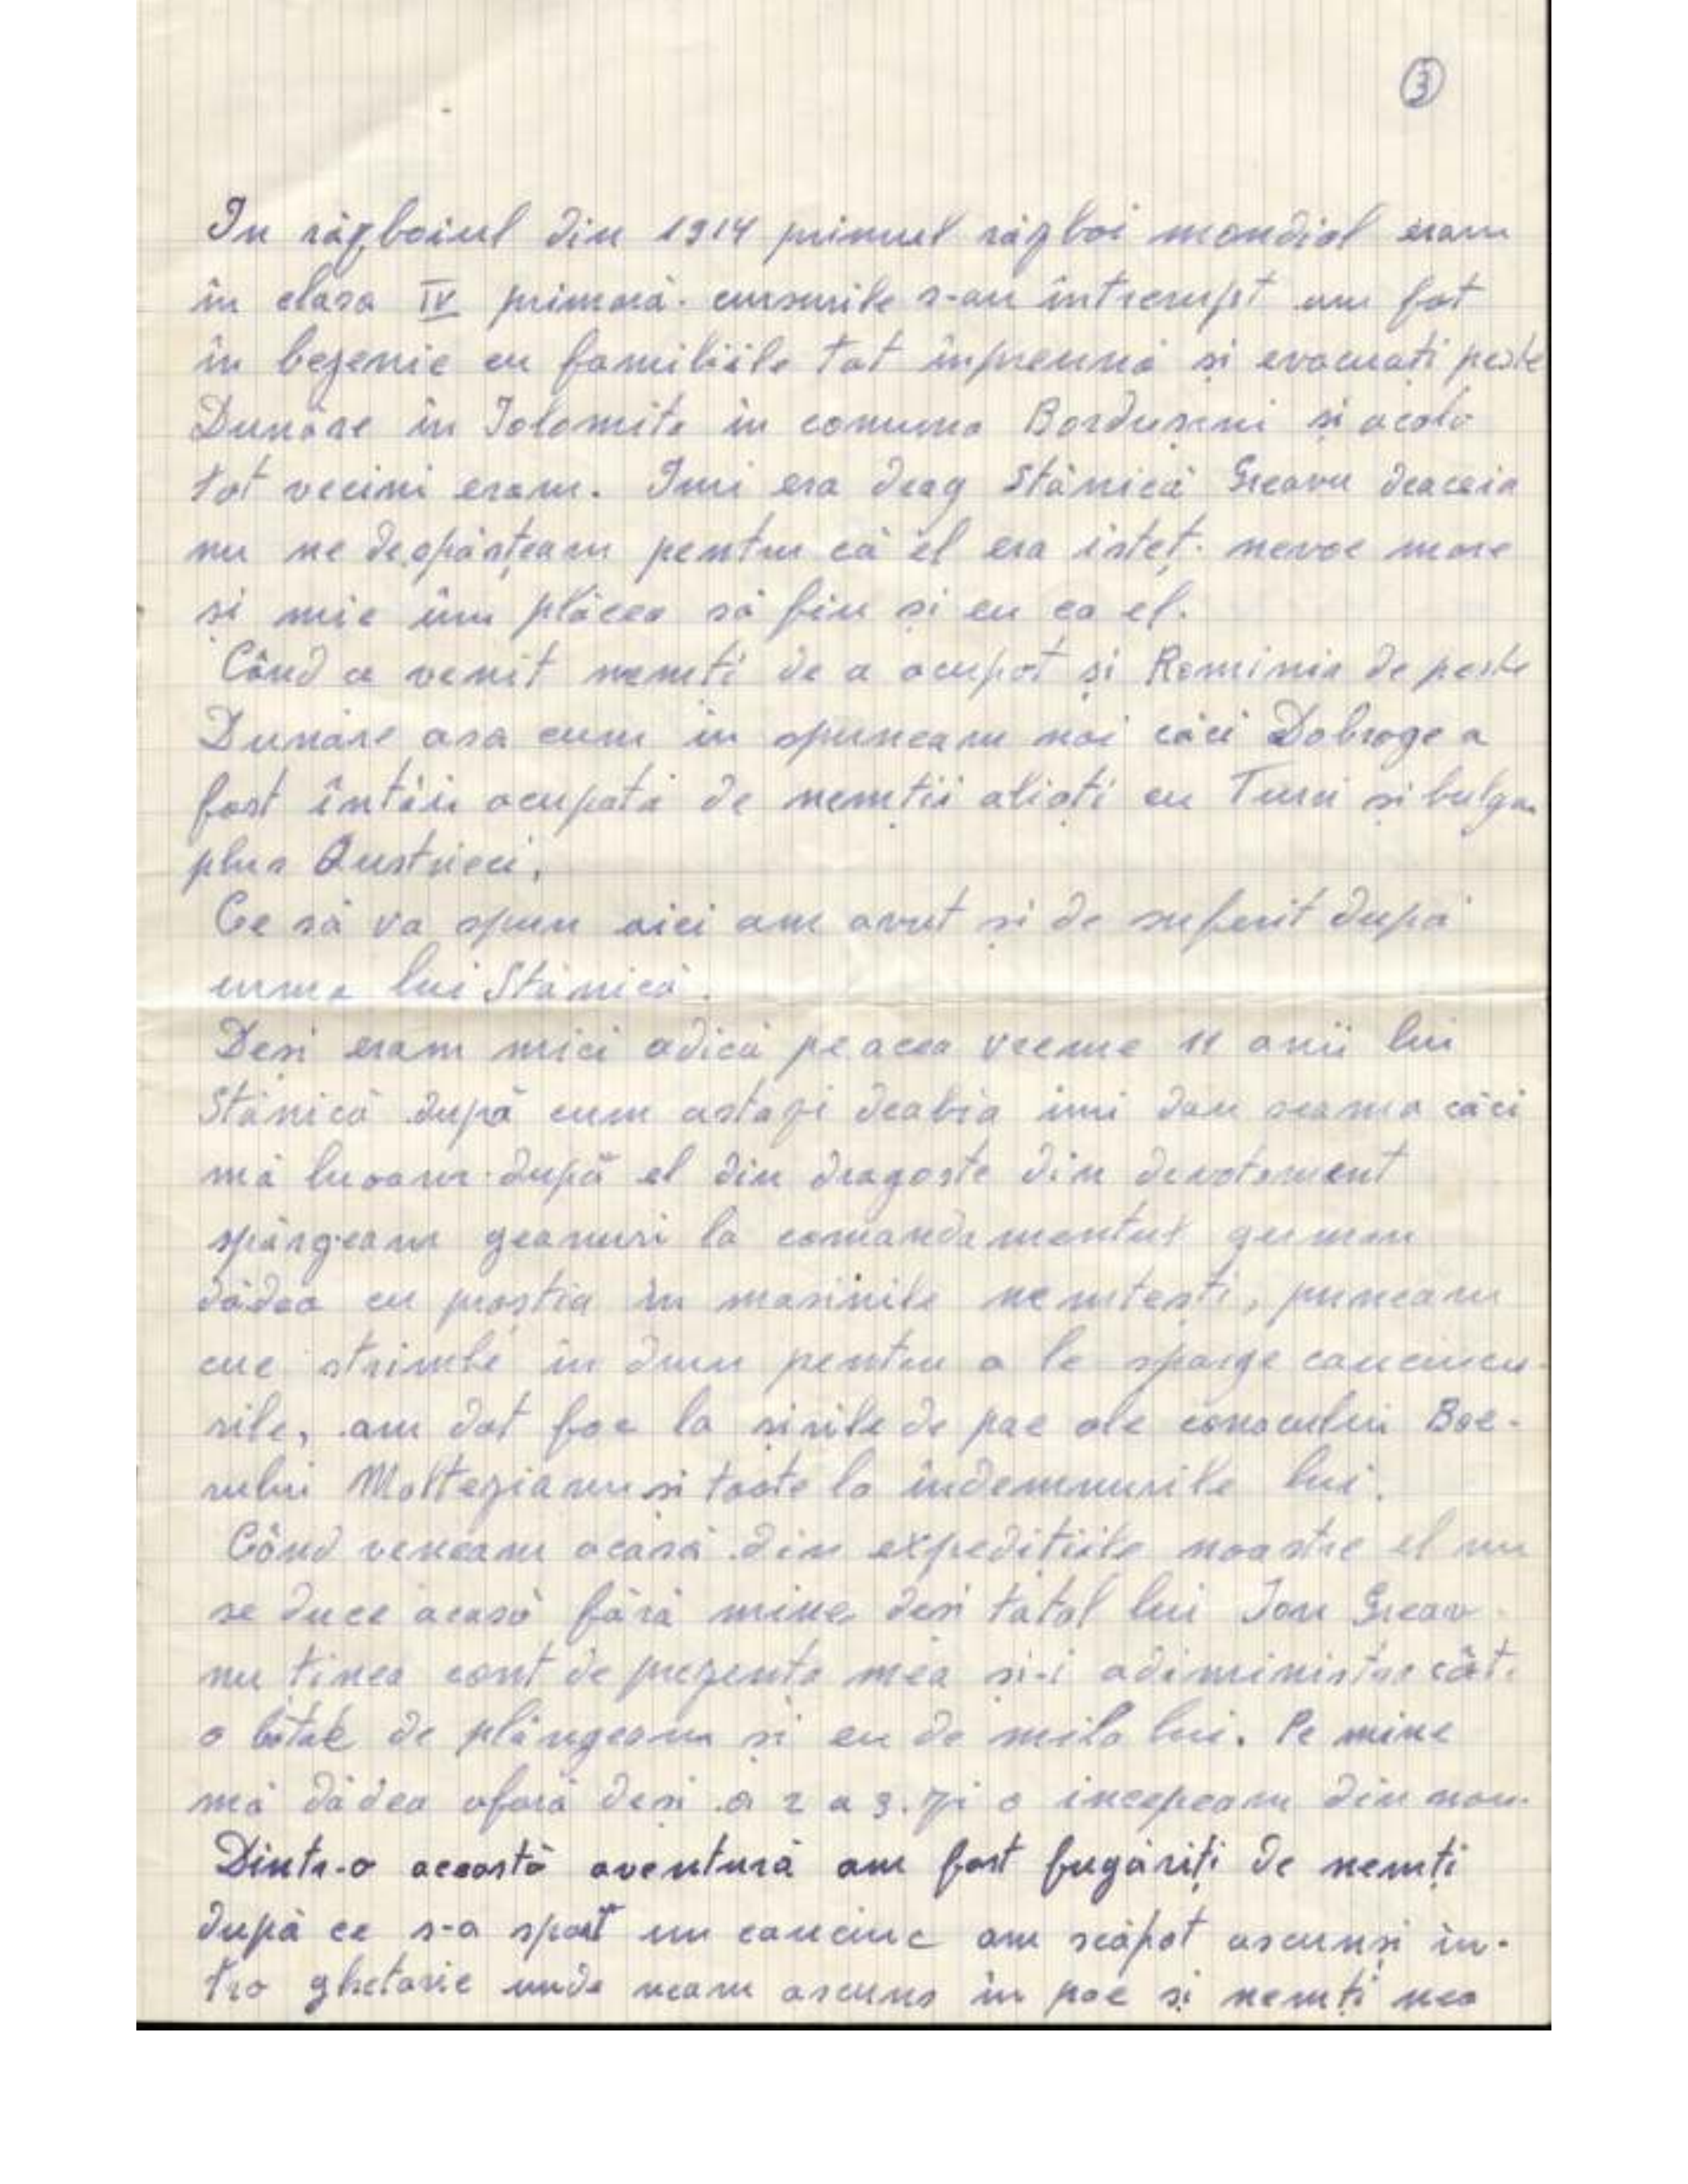 3
In răgboiul din 1914 primul răgboi mondial eram
în clasa IV primară. cursurile s-au întrerupt am fot
în bejenie cu familiile tot înpreună și evacuați peste
Dunăre în Ialomița in comuna Bordușeni și acolo
tot vecini eram. Imi era drag Stănică Greavu deaceia
nu ne despărțeam pentru că el era isteț. nevoe mare
și mie îmi plăcea să fiu și eu ca el.
Când a venit nemți de a ocupat și Rominia de peste
Dunăre asa cum îi spuneam noi căci Dobrogea
fost întâi ocupată de nemții aliați cu Turci și bulga
plus Austrieci,
Ce să va spun aici am avut și de suferit după
urma lui Stănică.
Desi eram mici adică pe acea vreme 11 anii lui
Stănică după cum astazi deabia imi dau seama căci
mă luoam după el din dragoste din devotament
spărgeam geamuri la comandamentul german
dădea cu praștia în masinile nemtești, puneam
cue strimbe in drum pentru a le sparge cauciucu-
rile, am dat foc la sirile de pae ale conacului Boe-
rului Moltezianu si toate la indemnurile lui.
Când veneam acasă din expedițiile noastre el nu
se duce acasă fără mine desi tatal lui Ion Greav
nu ținea cont de prezenta mea si-i administra cât.
o bătae de plângeam si eu de mila lui. Pe mine
mă dădea afară desi a 2 a 3. zi o incepeam din nou.
Dintr-o această aventură am fost fugăriți de nemți
după ce s-a spart un cauciuc am scăpat ascunși în-
tro ghetarie unde neam ascuns în pae și nemți nea